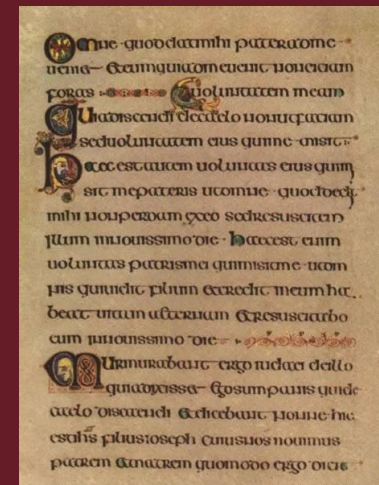 Omne quod dat mihi pater ad me
ueniet Et eum qui ad me uenit non eiciam
foras uoluntatem meam
Quia discendi de caelo non ut faciam
sed uoluntatem eius qui me misit
Haec est autem uoluntas eius qui
sit me pateris ut omne quod dedit
mihi non perdam ex eo sed resuscitem
illum in nouissimo die haec est enim
uoluntas patris mei qui misit me ut om
nis qui uidit filium et credit in eum ha
beat uitam aeternam Et resuscitabo
eum in nouissimo die
Murmurabant ergo iudaei de illo
quia dixisset Ego sum panis qui de
caelo discendi Et dicebant nonne hic
est ihs filius ioseph cuius nos nouimus
patrem Et matrem quomodo ergo dicit